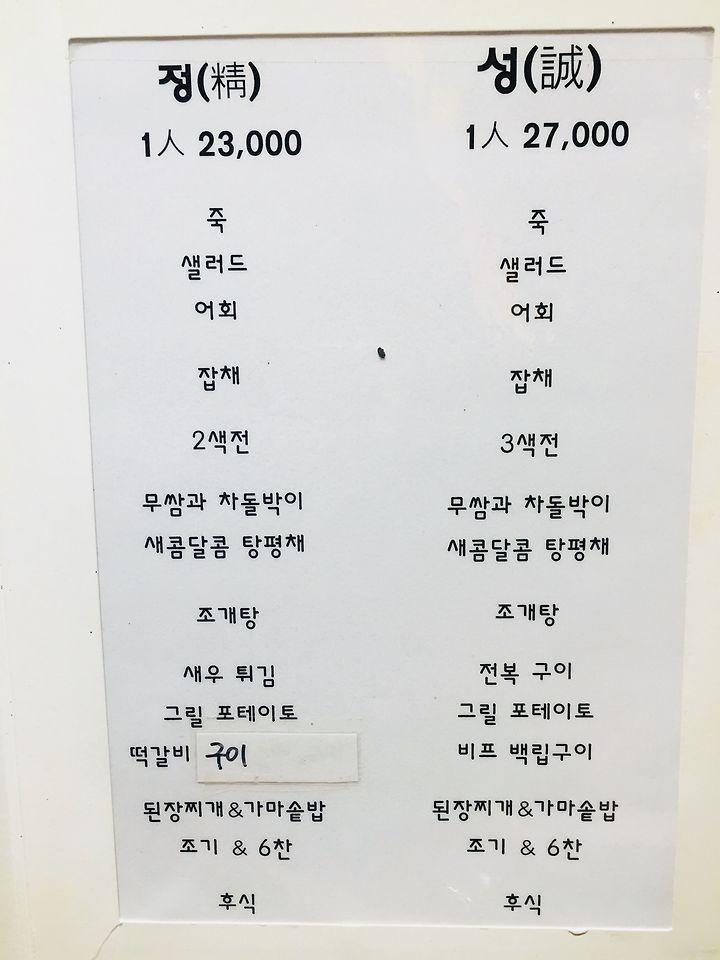 정(精)
1人 23,000
죽
샐러드
어회
잡채
2색전
무쌈과 차돌박이
새콤달콤 탕평채
조개탕
새우 튀김
그릴 포테이토
떡갈비 구이
된장찌개&가마솥밥
조기 & 6찬
후식
성(誠)
1人 27,000
죽
샐러드
어회
잡채
3색전
무쌈과 차돌박이
새콤달콤 탕평채
조개탕
전복 구이
그릴 포테이토
비프 백립구이
된장찌개&가마솥밥
조기 & 6찬
후식